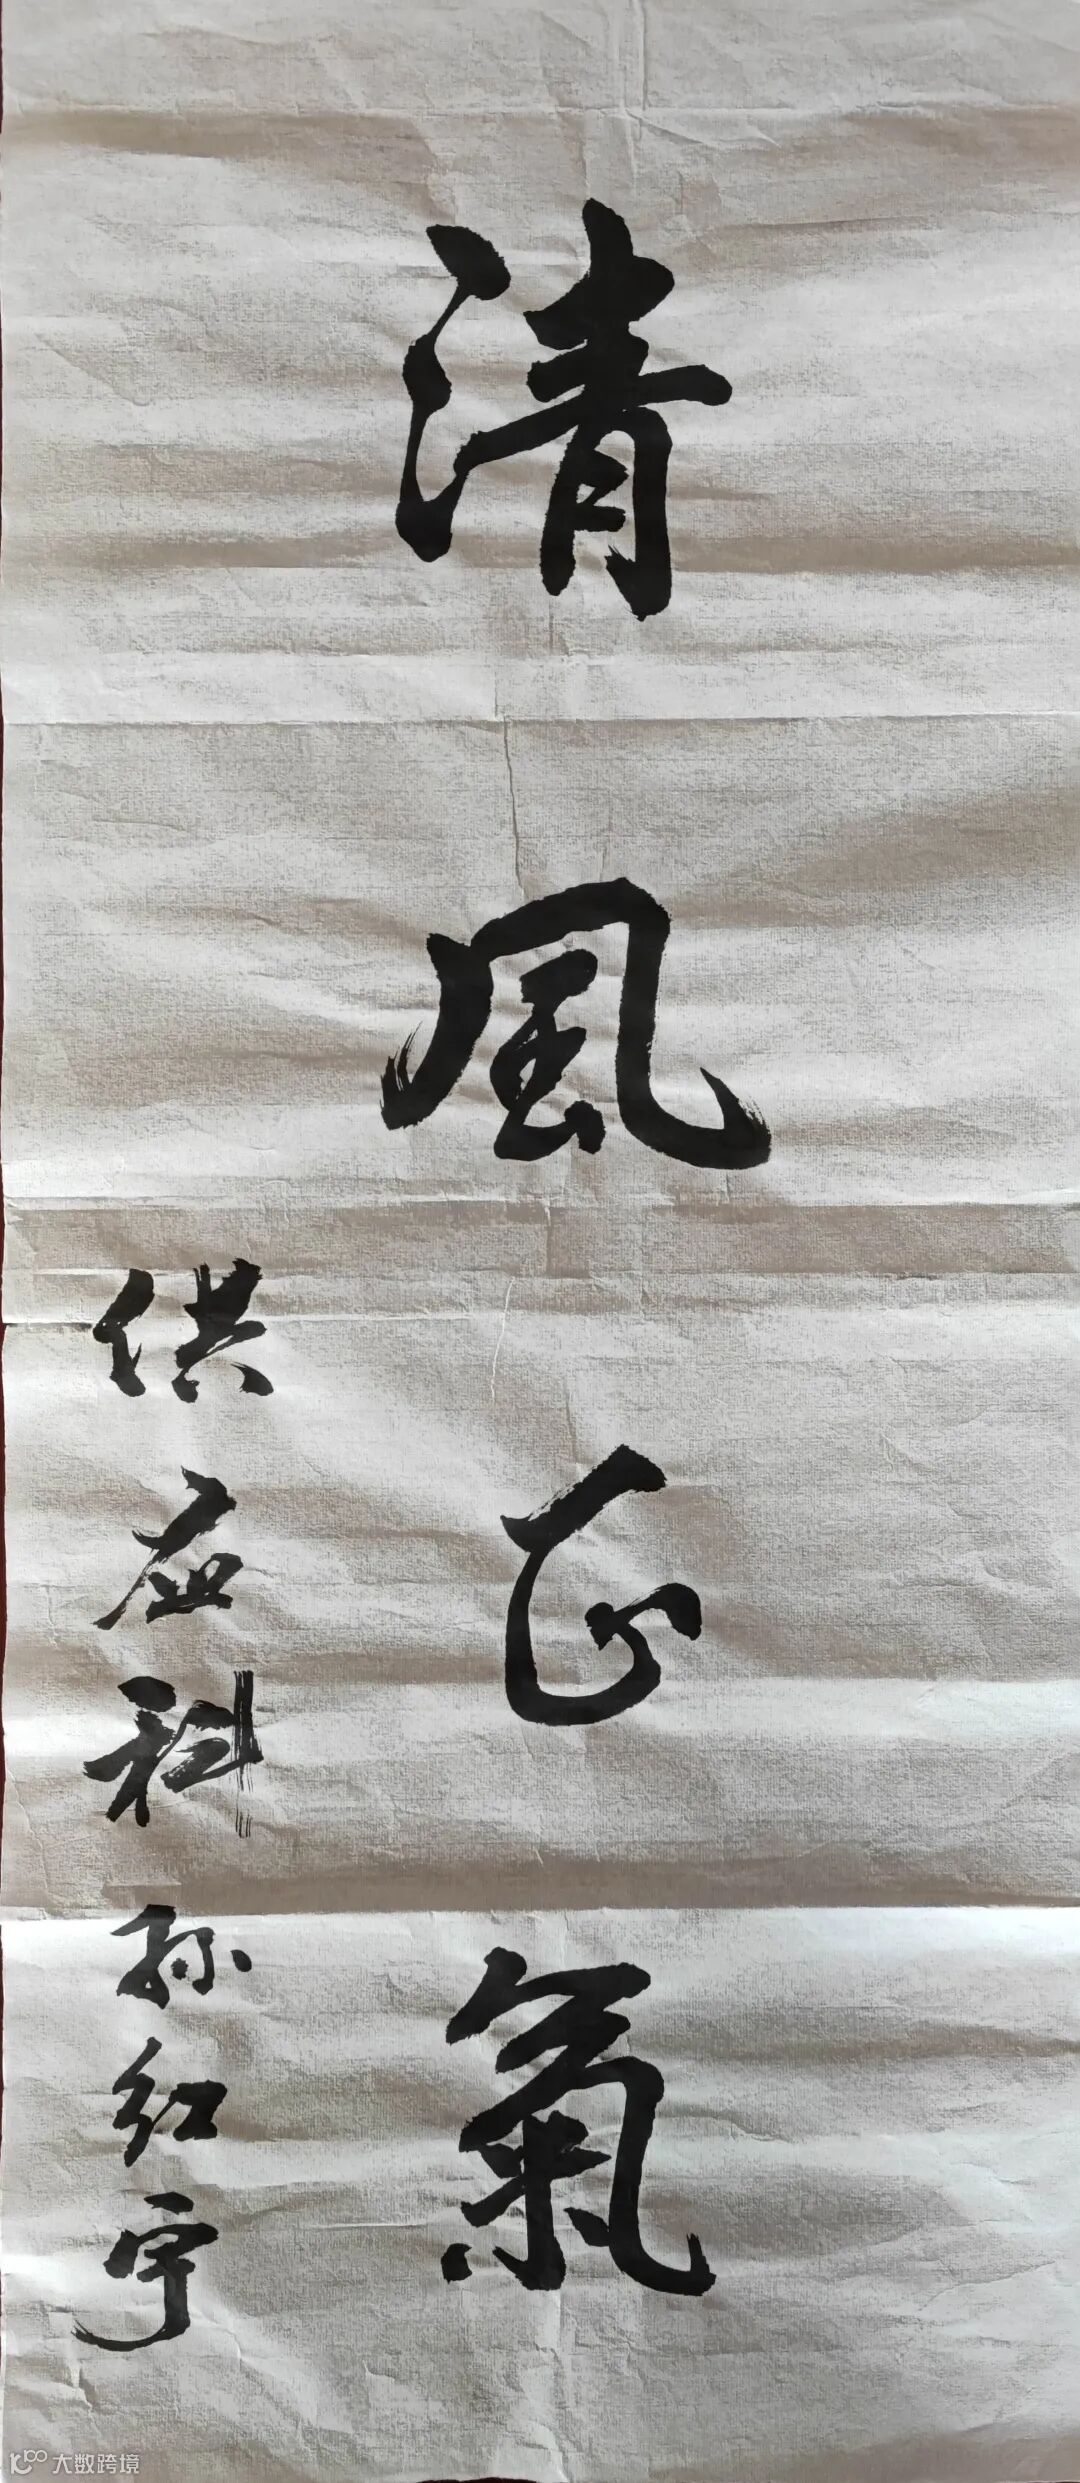 清風正氣
供应科 孙红宇
大数跨境